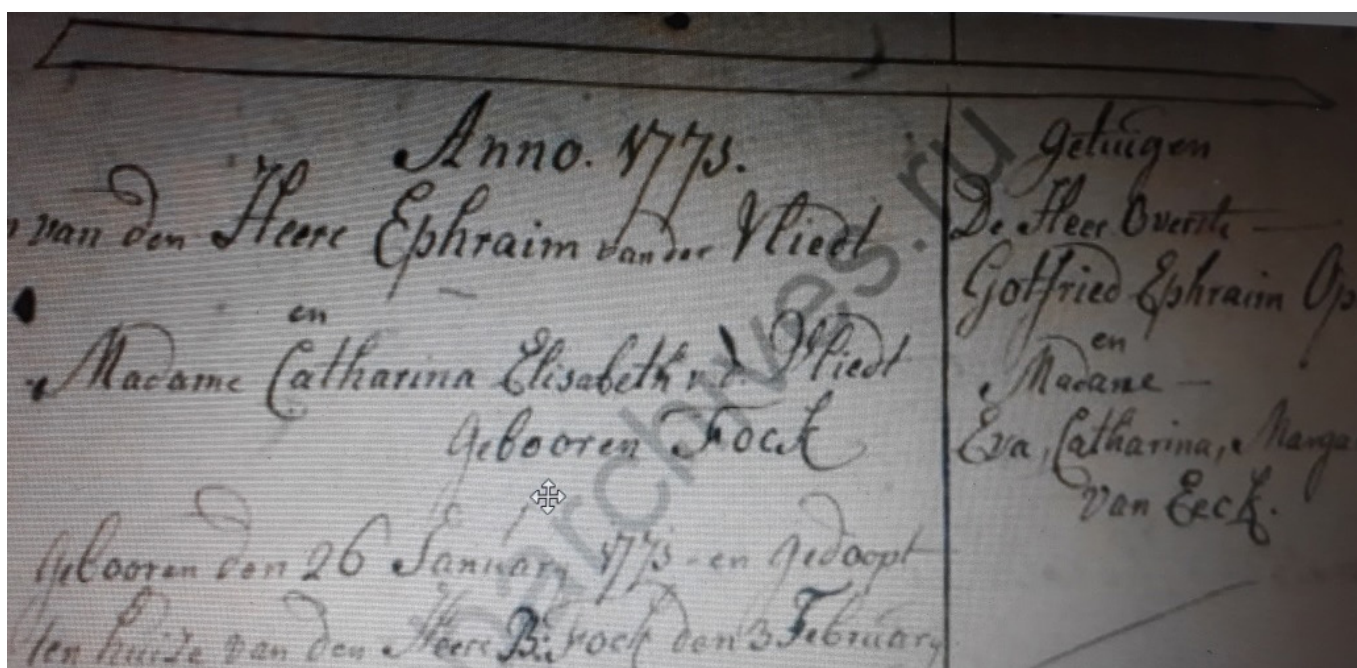 Anno. 1773.
van den Heere Ephraim van der Vliedt
en
Madame Catharina Elisabeth v. d. Vliedt
Gebooren Fock
Gebooren den 26 January 1773 - en Gedoopt
ten huize van den Heere B: Fock den 3 February
Getuigen
De Heer Overste
Gotfried Ephraim Op
en
Madame
Eva, Catharina, Marga
van Eeck.
archives.ru